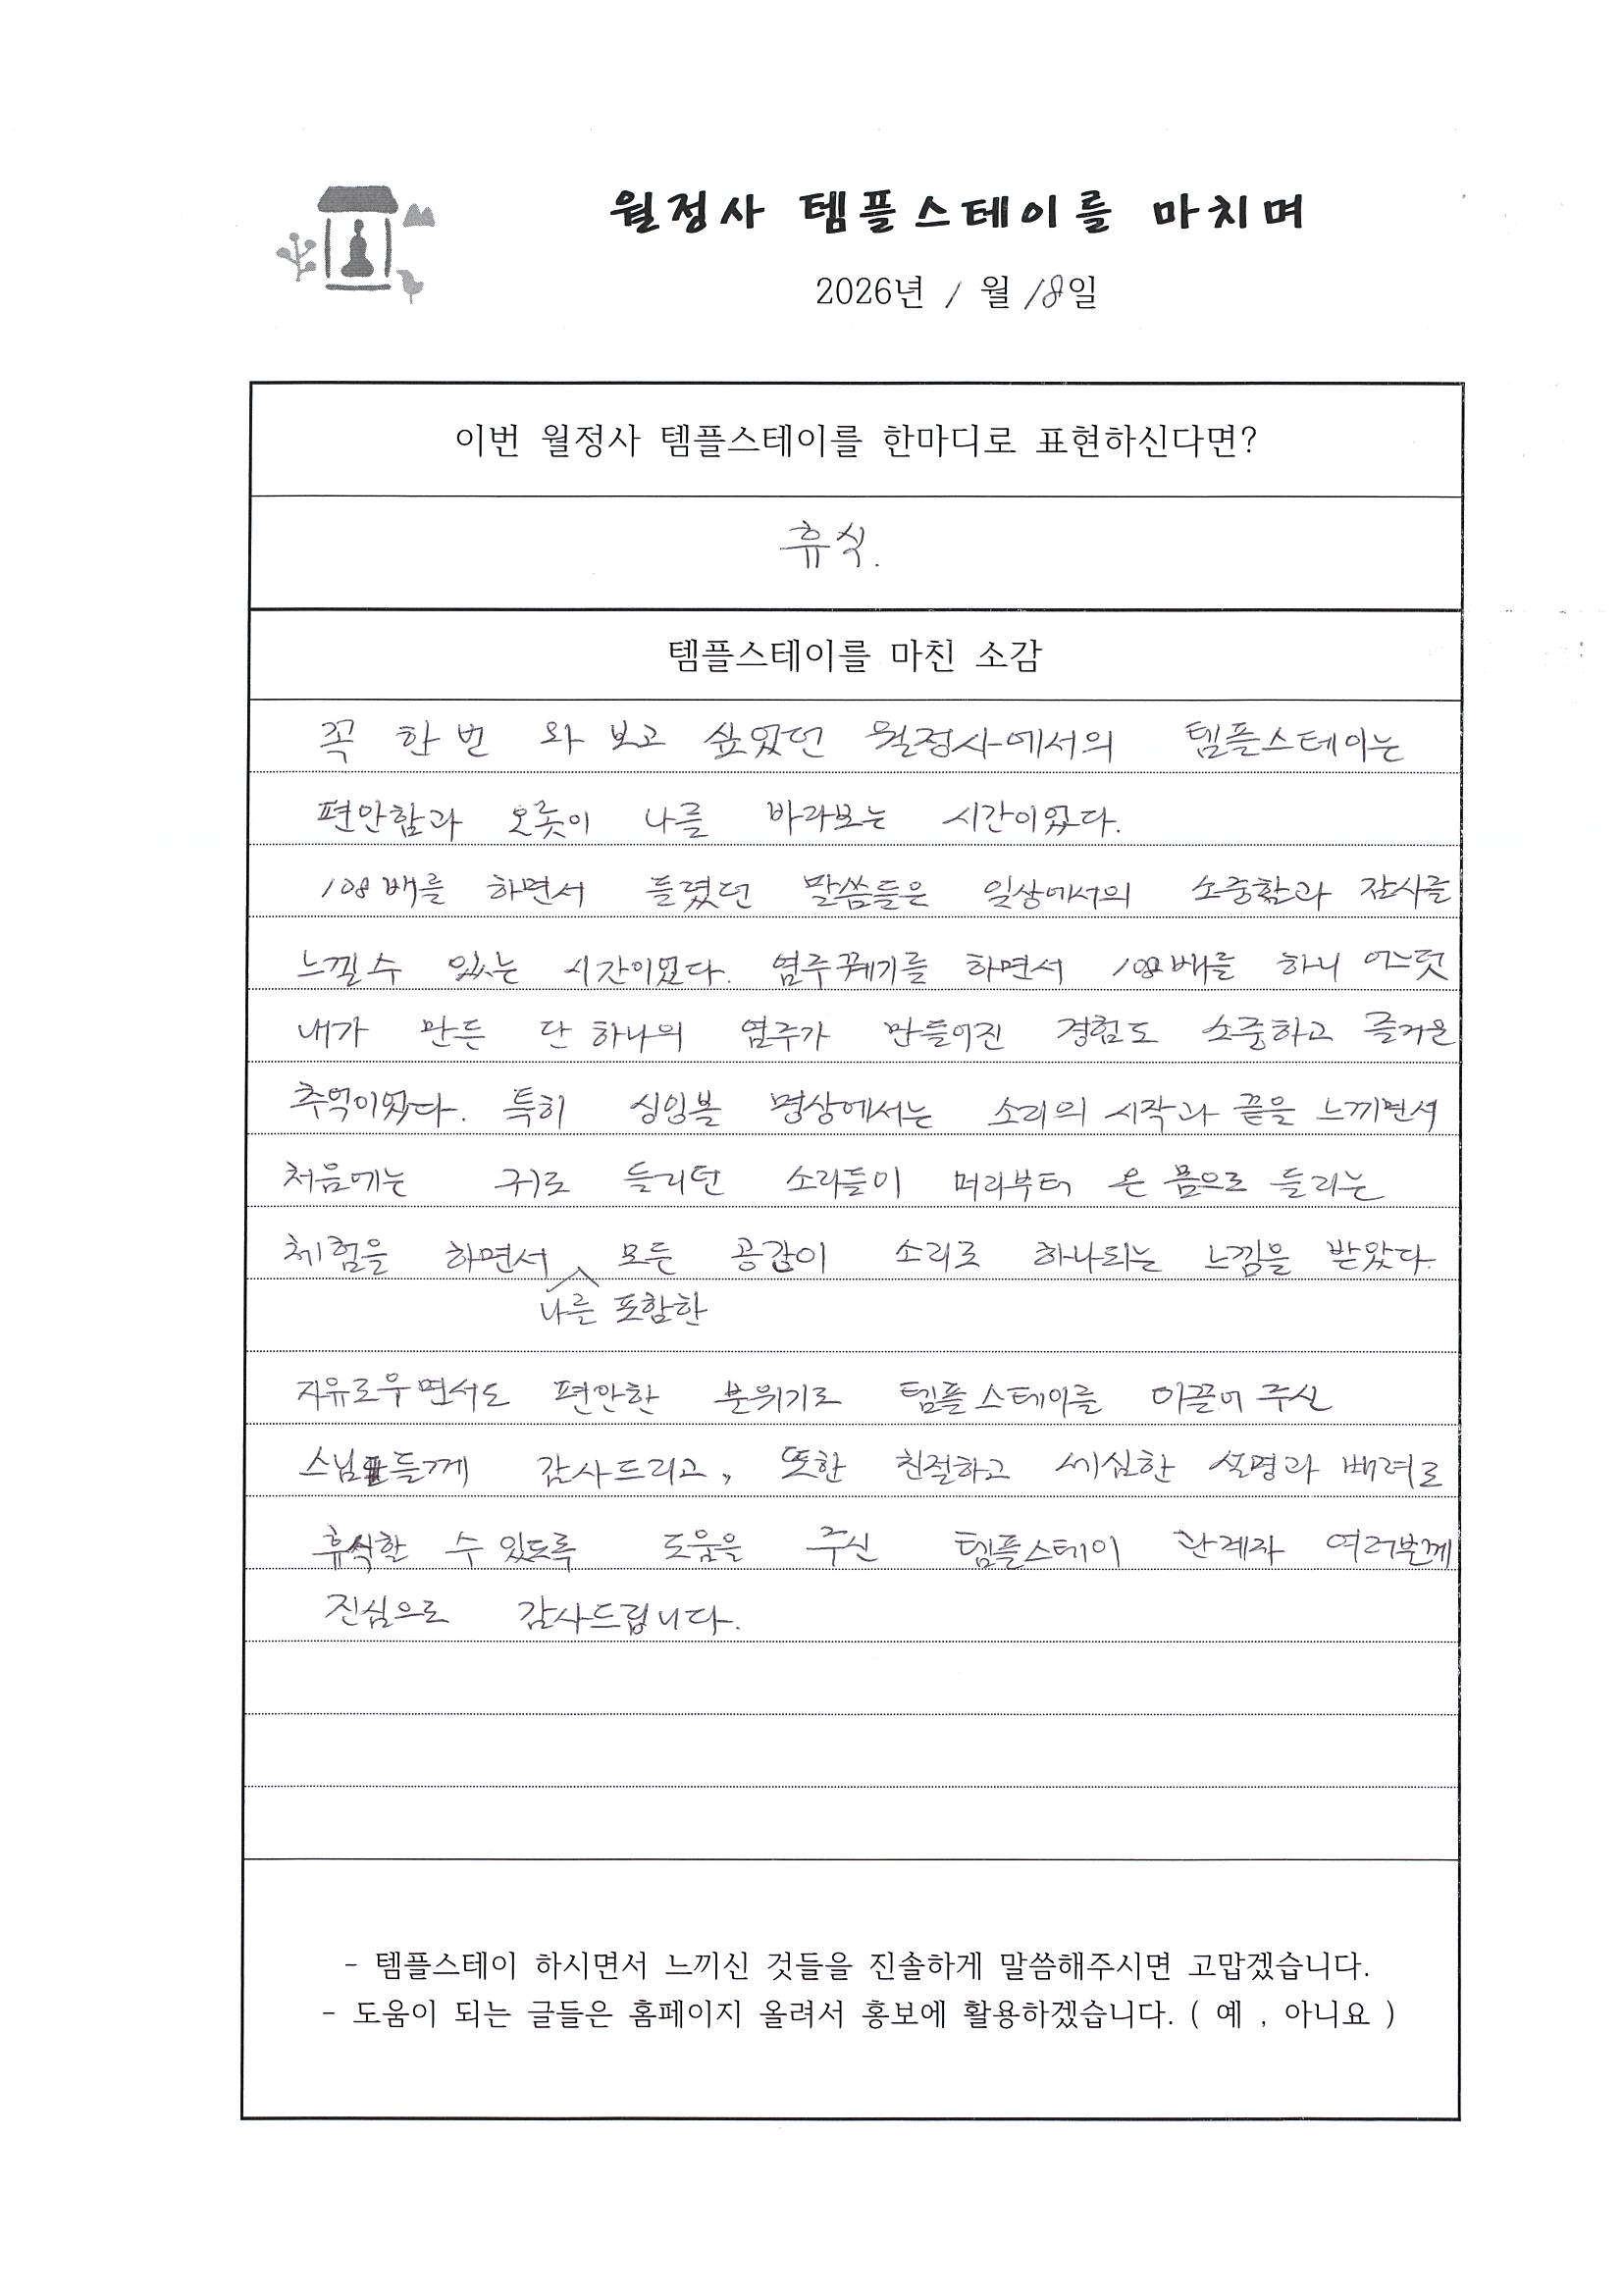 월정사 템플스테이를 마치며
2026년 1월 18일
이번 월정사 템플스테이를 한마디로 표현하신다면?
휴식.
템플스테이를 마친 소감
꼭 한번 와 보고 싶었던 월정사에서의 템플스테이는
편안함과 오롯이 나를 바라보는 시간이었다.
108배를 하면서 들렸던 말씀들은 일상에서의 소중함과 감사를
느낄 수 있는 시간이었다. 염주꿰기를 하면서 108배를 하니 어느덧
내가 만든 단 하나의 염주가 만들어진 경험도 소중하고 즐거운
추억이었다. 특히 싱잉볼 명상에서는 소리의 시작과 끝을 느끼면서
처음에는 귀로 들리던 소리들이 머리부터 온 몸으로 들리는
체험을 하면서 모든 공간이 소리로 하나되는 느낌을 받았다.
나를 포함한
자유로우면서도 편안한 분위기로 템플스테이를 이끌어 주신
스님들께 감사드리고, 또한 친절하고 세심한 설명과 배려로
휴식할 수 있도록 도움을 주신 템플스테이 관계자 여러분께
진심으로 감사드립니다.
- 템플스테이 하시면서 느끼신 것들을 진솔하게 말씀해주시면 고맙겠습니다.
- 도움이 되는 글들은 홈페이지 올려서 홍보에 활용하겠습니다. ( 예 , 아니요 )